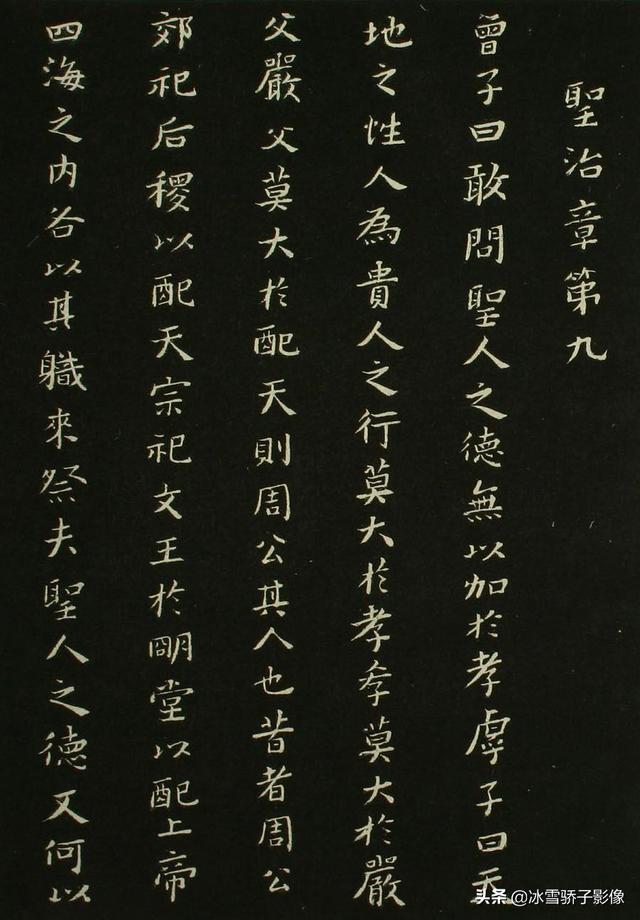 聖治章第九
曾子曰敢問聖人之德無以加於孝虖子曰天
地之性人為貴人之行莫大於孝孝莫大於嚴
父嚴父莫大於配天則周公其人也昔者周公
郊祀后稷以配天宗祀文王於明堂以配上帝
四海之内各以其職來祭夫聖人之德又何以
头条 @冰雪骄子影像